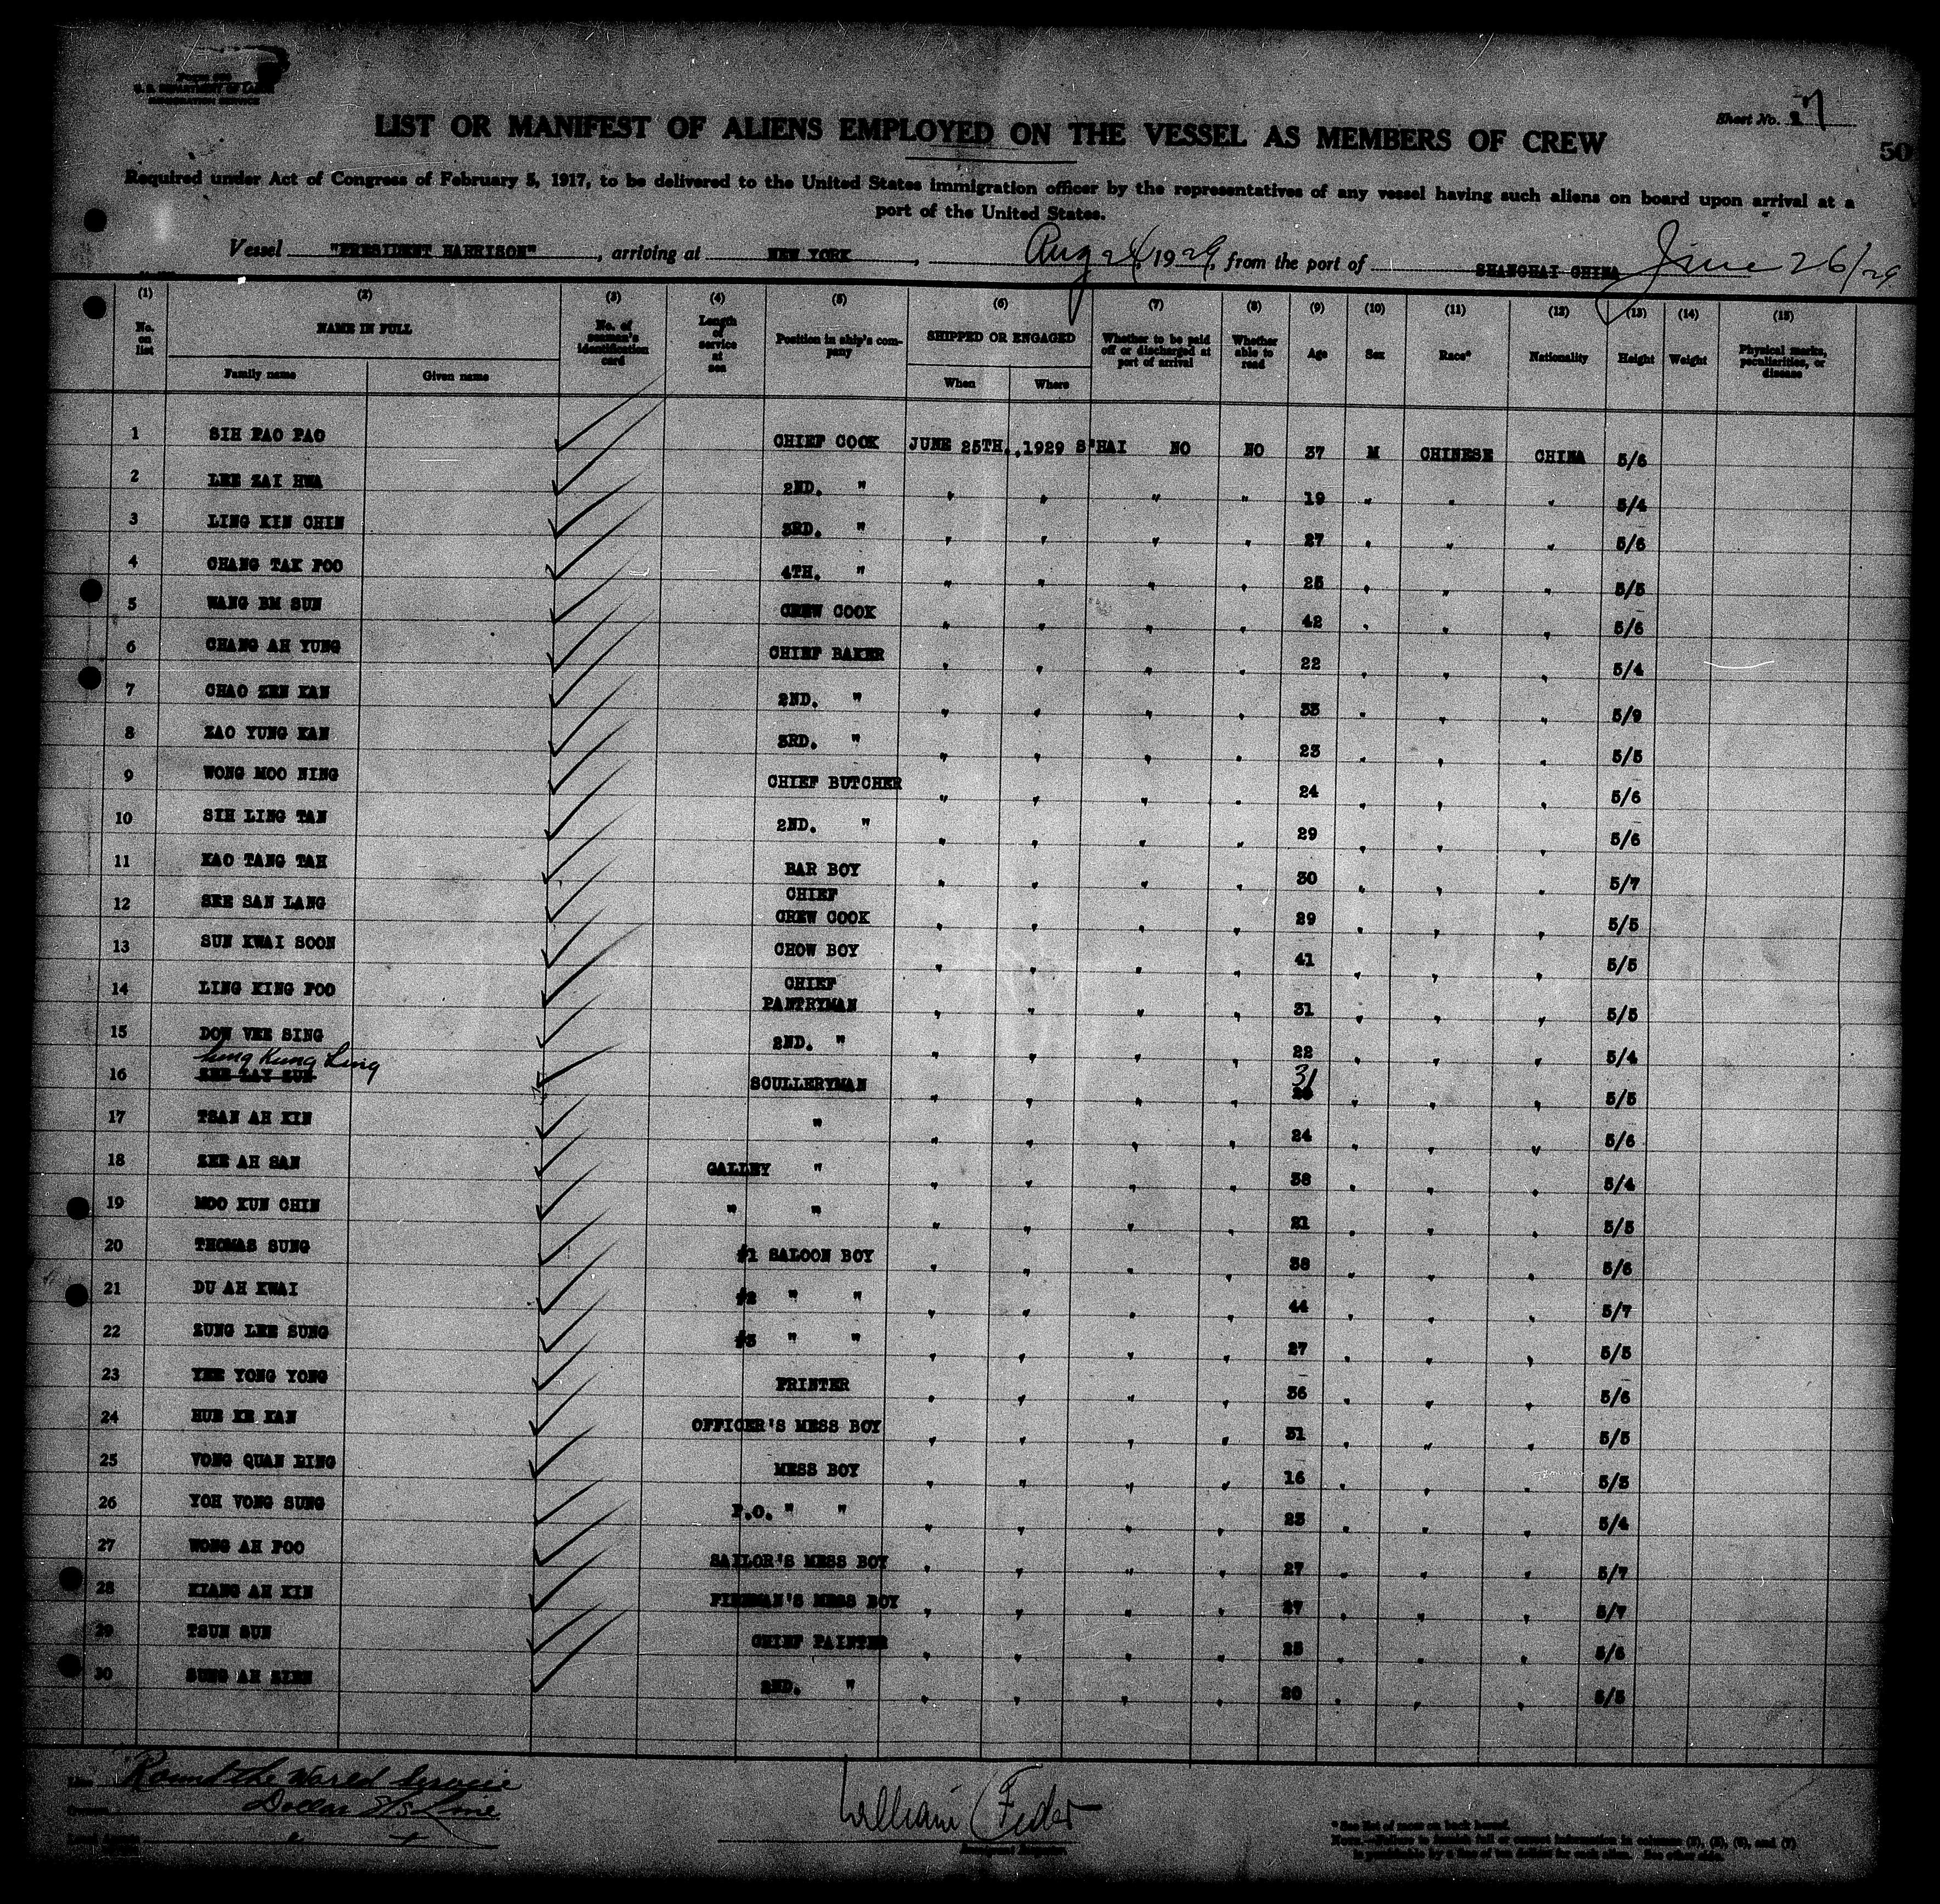 Form 689
U. S. DEPARTMENT OF LABOR
IMMIGRATION SERVICE
Sheet No. 7
LIST OR MANIFEST OF ALIENS EMPLOYED ON THE VESSEL AS MEMBERS OF CREW
50
Required under Act of Congress of February 5, 1917, to be delivered to the United States immigration officer by the representatives of any vessel having such aliens on board upon arrival at a
port of the United States.
Vessel "PRESIDENT HARRISON", arriving at NEW YORK, Aug 24, 1929, from the port of SHANGHAI CHINA June 26/29
(1) (2) (3) (4) (5) (6) (7) (8) (9) (10) (11) (12) (13) (14) (15)
No. on list NAME IN FULL No. of seaman's identification card Length of service at sea Position in ship's company SHIPPED OR ENGAGED Whether to be paid off or discharged at port of arrival Whether able to read Age Sex Race* Nationality Height Weight Physical marks, peculiarities, or disease
Family name Given name When Where
1 SIH PAO PAO CHIEF COOK JUNE 25TH.,1929 S'HAI NO NO 37 M CHINESE CHINA 5/6
2 LEE ZAI HWA 2ND. " " " " " 19 " " " 5/4
3 LING KIN CHIN 3RD. " " " " " 27 " " " 5/6
4 CHANG TAK FOO 4TH. " " " " " 25 " " " 5/5
5 WANG BM SUN CREW COOK " " " " 42 " " " 5/6
6 CHANG AH YUNG CHIEF BAKER " " " " 22 " " " 5/4
7 CHAO ZEN KAN 2ND. " " " " " 33 " " " 5/9
8 ZAO YUNG KAN 3RD. " " " " " 23 " " " 5/5
9 WONG MOO NING CHIEF BUTCHER " " " " 24 " " " 5/6
10 SIH LING TAN 2ND. " " " " " 29 " " " 5/6
11 KAO TANG TAH BAR BOY " " " " 30 " " " 5/7
12 SEE SAN LANG CHIEF CREW COOK " " " " 29 " " " 5/5
13 SUN KWAI SOON CHOW BOY " " " " 41 " " " 5/5
14 LING KING FOO CHIEF PANTRYMAN " " " " 31 " " " 5/5
15 DOW VEE SING 2ND. " " " " " 22 " " " 5/4
Kung Ling
16 ZEE ZAY SUN SCULLERYMAN " " " " 31 " " " 5/5
17 TSAN AH KIN " " " " " 24 " " " 5/6
18 ZEE AH SAN GALLEY " " " " " 38 " " " 5/4
19 MOO KUN CHIN " " " " " " 21 " " " 5/5
20 THOMAS SUNG #1 SALOON BOY " " " " 38 " " " 5/6
21 DU AH KWAI #2 " " " " " " 44 " " " 5/7
22 ZUNG LEE SUNG #3 " " " " " " 27 " " " 5/5
23 YEE YONG YONG PRINTER " " " " 36 " " " 5/6
24 HUE KE KAN OFFICER'S MESS BOY " " " " 31 " " " 5/5
25 VONG QUAN RING MESS BOY " " " " 16 " " " 5/5
26 YOH VONG SUNG P.O. " " " " " " 23 " " " 5/4
27 WONG AH FOO SAILOR'S MESS BOY " " " " 27 " " " 5/7
28 KIANG AH KIN FIREMAN'S MESS BOY " " " " 27 " " " 5/7
29 TSUN SUN CHIEF PAINTER " " " " 25 " " " 5/6
30 SUNG AH 2ND. " " " " " 20 " " " 5/5
Line Round the World Service
Owners Dollar S/S Line
Local Agents " "
William Feder
Immigrant Inspector
* See list of races on back hereof.
NOTE.—Failure to furnish full or correct information in columns (2), (5), (6), and (7)
is punishable by a fine of ten dollars for each alien. See other side.